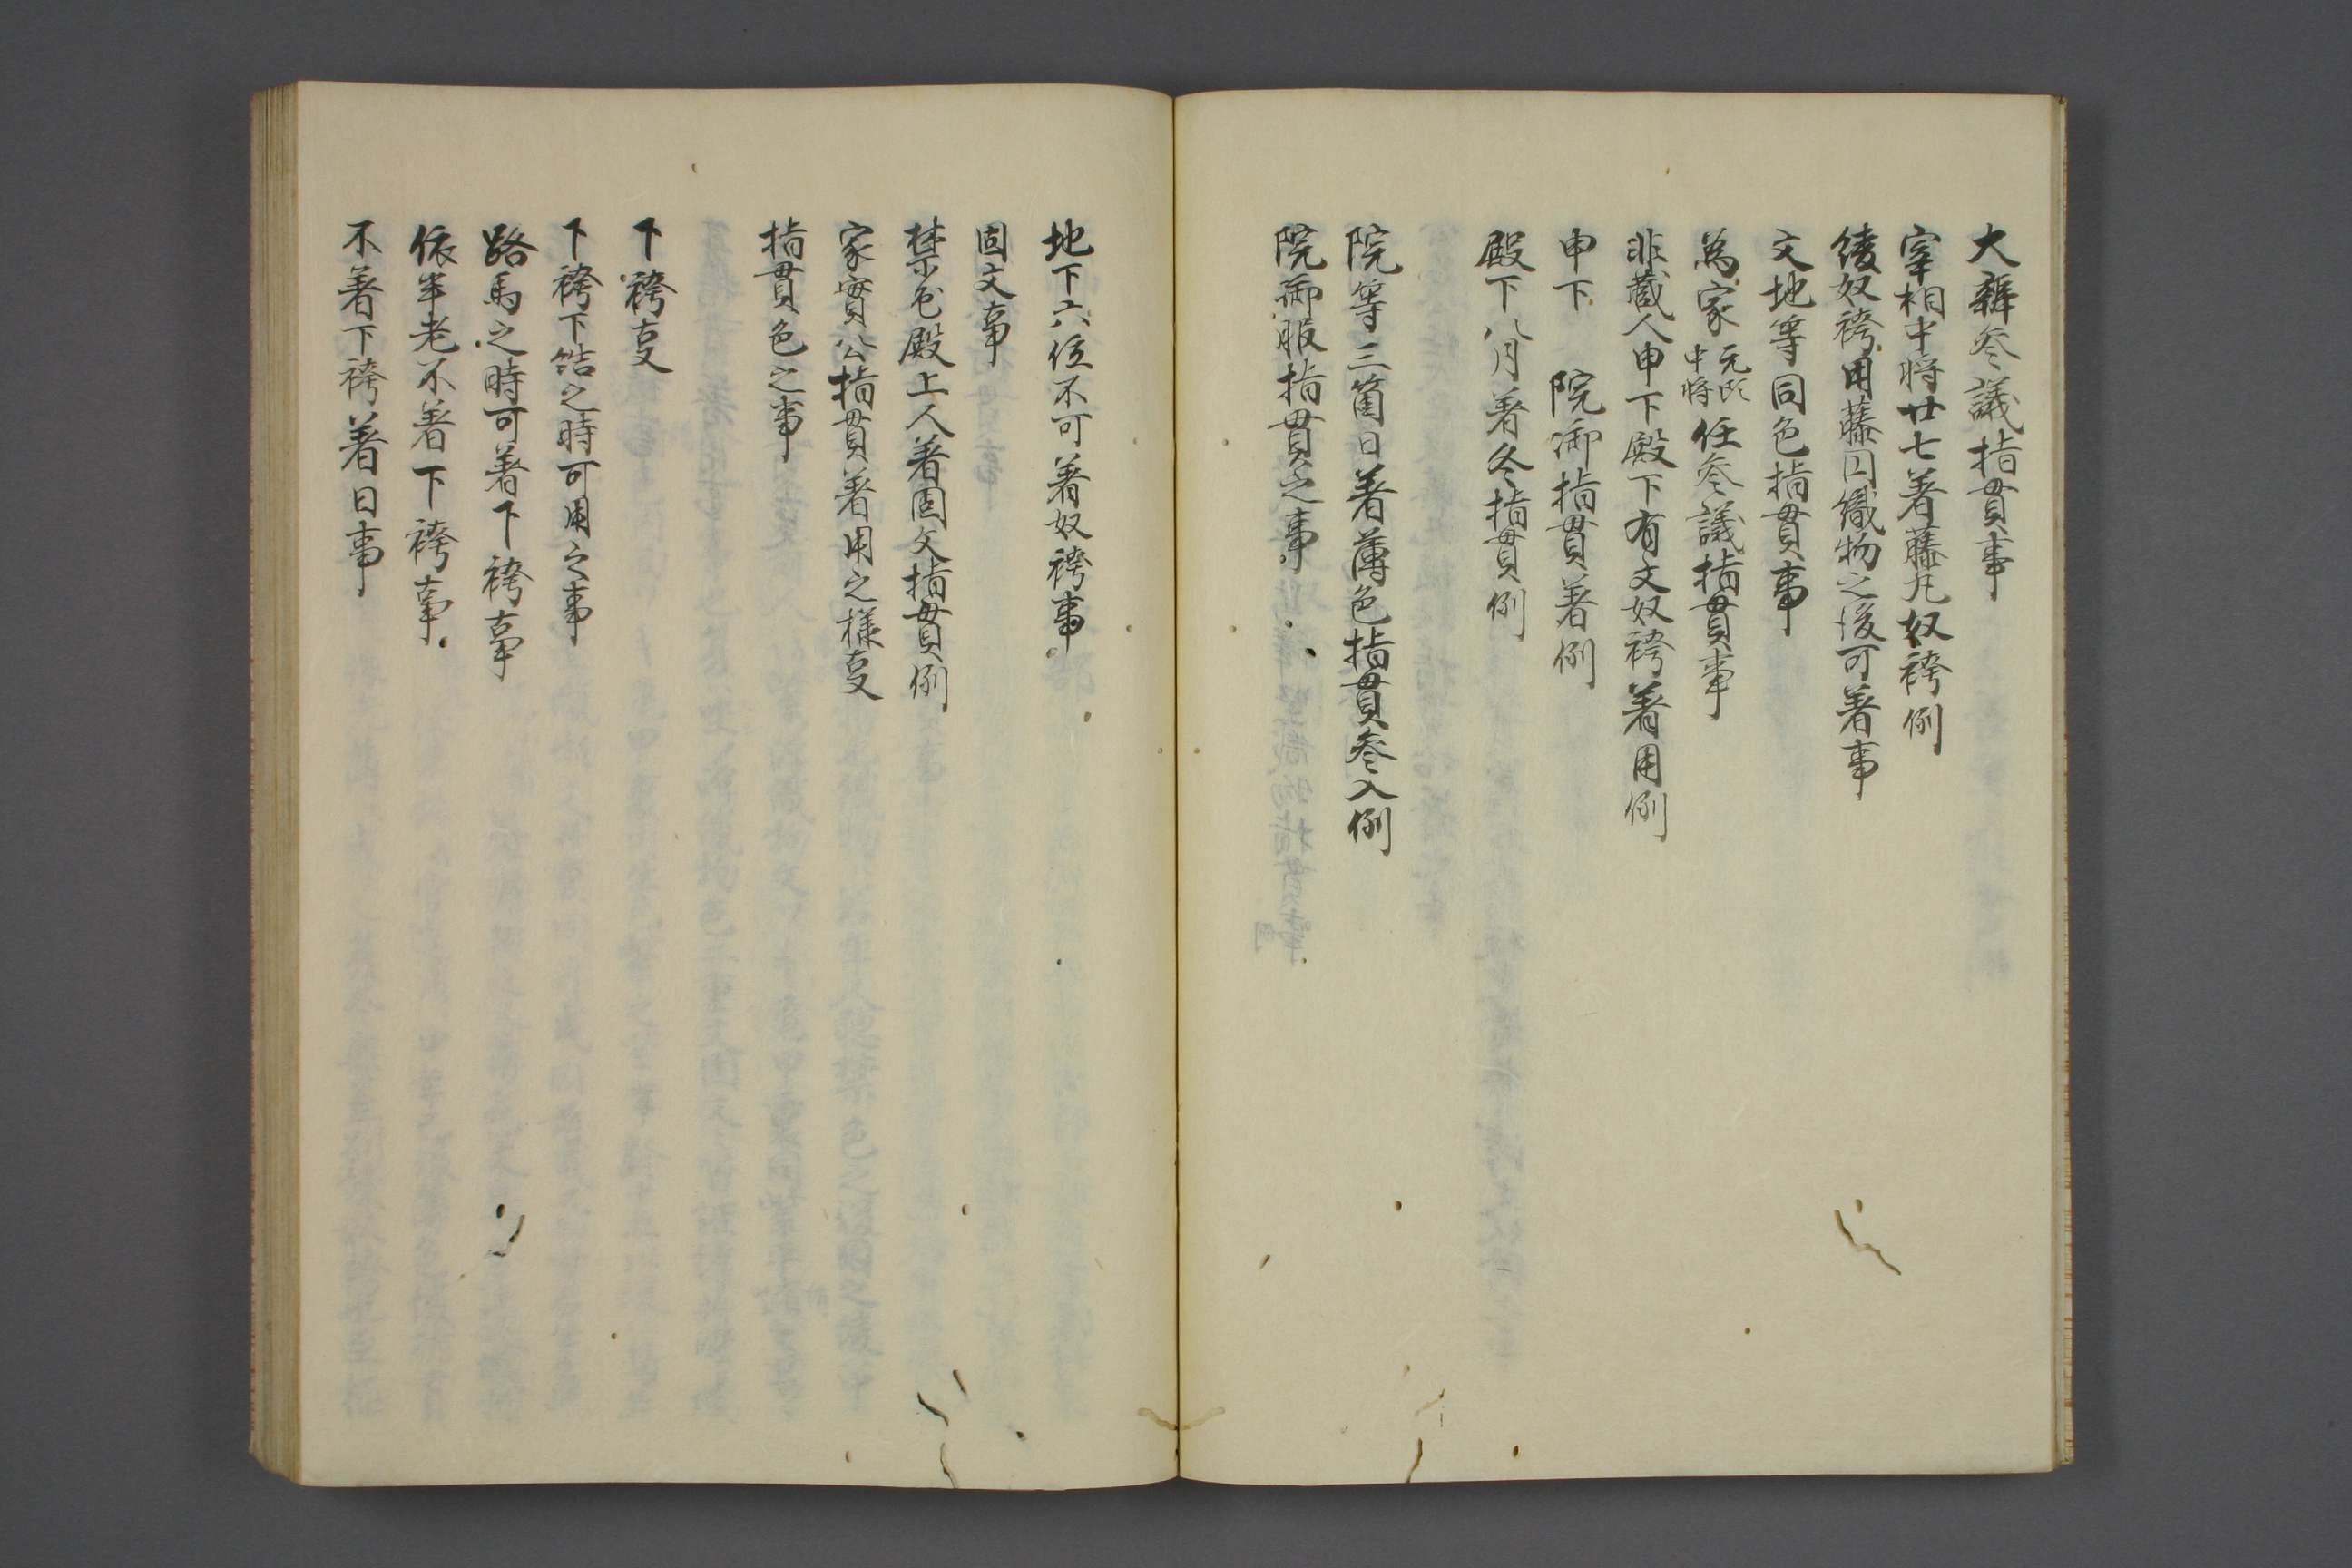 大辨参議指貫事
宰相中将廿七著藤丸奴袴例
綾奴袴用藤円織物之後可著事
文地等同色指貫事
為家元頭中将任参議指貫事
非蔵人申下殿下有文奴袴著用例
申下 院御指貫著例
殿下八月著冬指貫例
院等三箇日著薄色指貫参入例
院御服指貫之事
地下六位不可著奴袴事
固文事
禁色殿上人著固文指貫例
家實公指貫著用之様事
指貫色之事
下袴事
下袴下結之時可用之事
路馬之時可著下袴事
依年老不著下袴事
不著下袴著日事